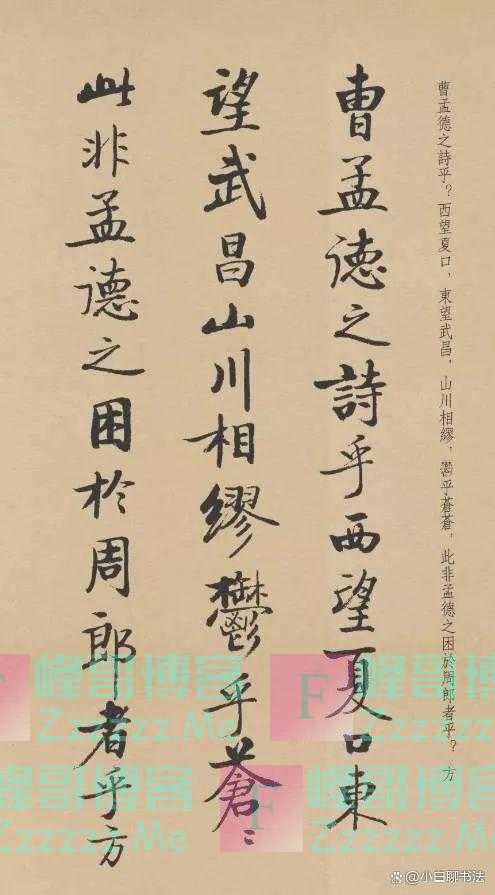 曹孟德之詩乎？西望夏口，東望武昌，山川相繆，鬱乎蒼蒼，此非孟德之困於周郎者乎？方
曹孟德之詩乎西望夏口東
望武昌山川相繆鬱乎蒼〻
此非孟德之困於周郎者乎方
峰哥博客
Zzzzzz.Me
F
峰哥博客
Zzzzzz.Me
F
峰哥博客
Zzzzzz.Me
F
峰哥博客
Zzzzzz.Me
@小白聊书法